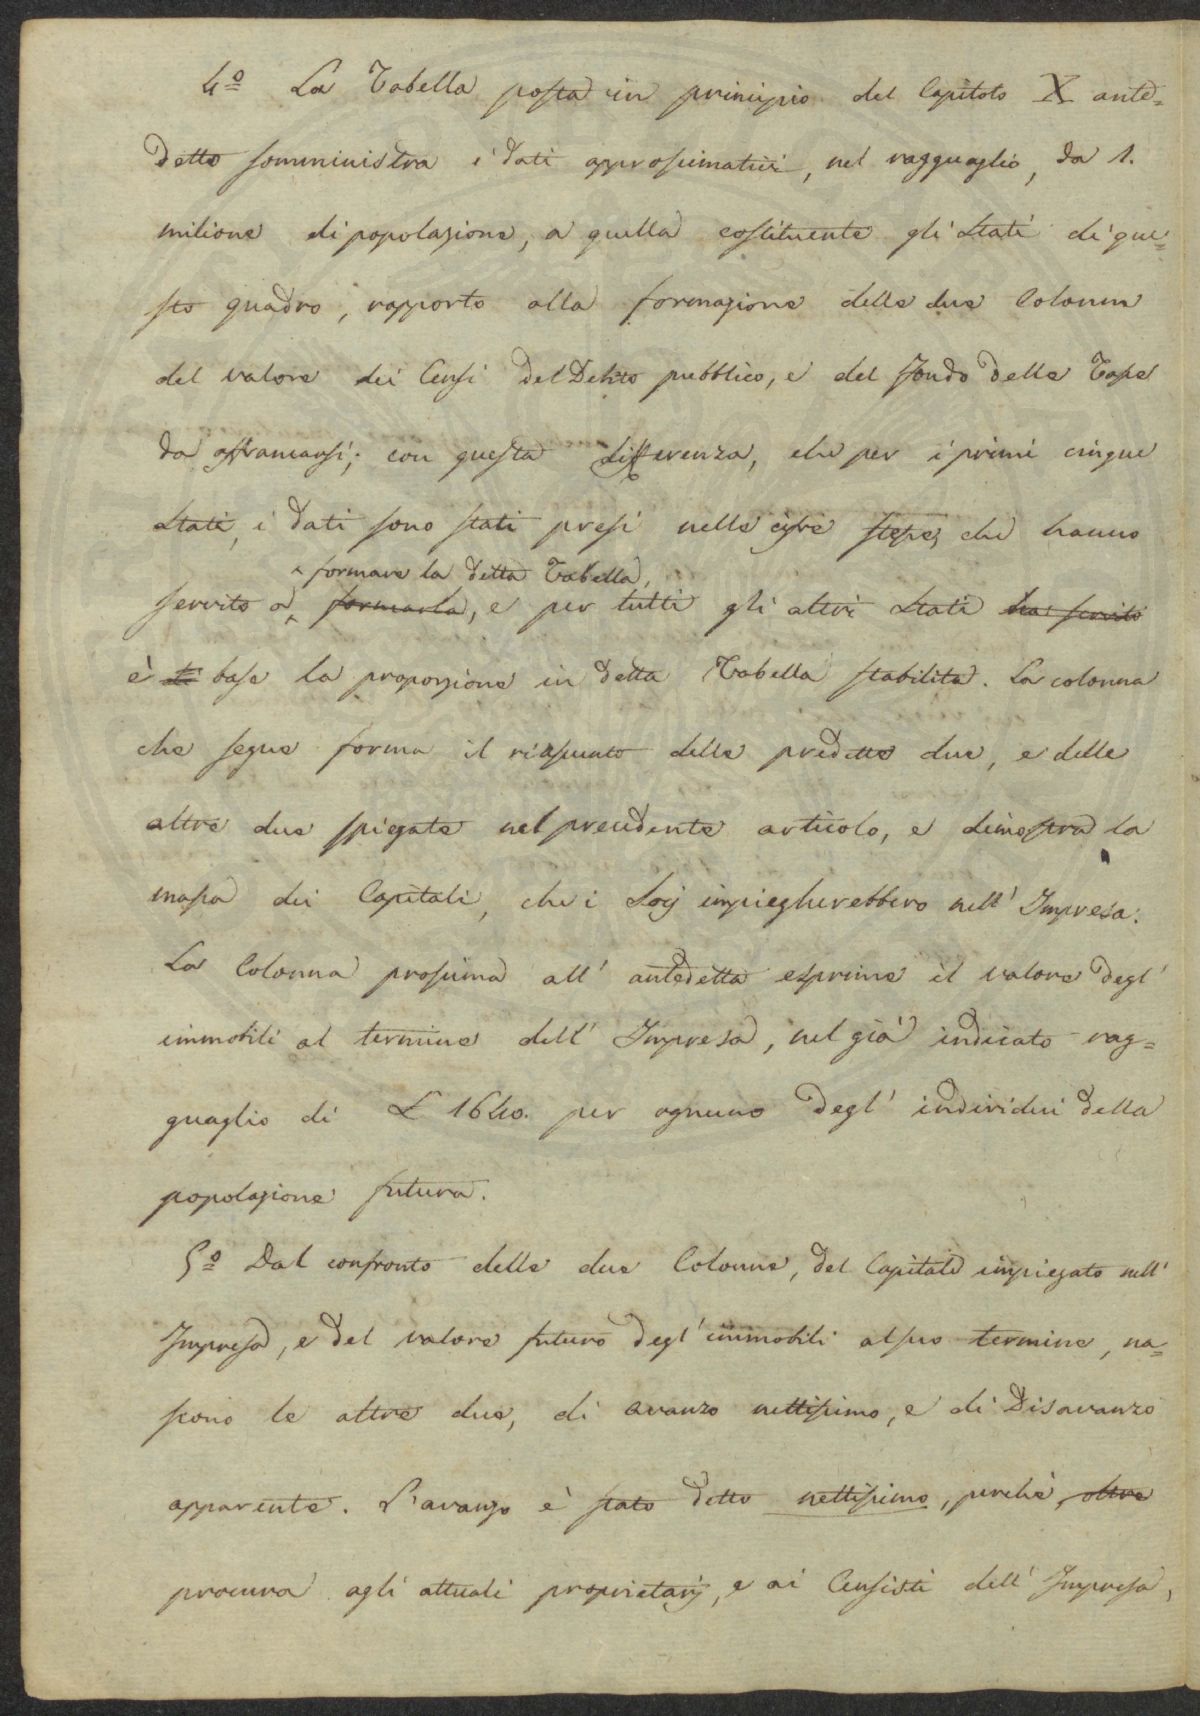 4.º La Tabella posta in principio del Capitolo X ante=
detto somministra i dati approssimativi, nel ragguaglio, da 1.
milione di popolazione, a quella costituente gli Stati di que=
sto quadro, rapporto alla formazione delle due Colonne
del valore dei Censi del Debito pubblico, e del fondo delle Tasse
da affrancarsi; con questa differenza, che per i primi cinque
Stati, i dati sono stati presi nelle cifre stesse, che hanno
formare la detta Tabella,
servito a formarla, e per tutti gli altri Stati ha servito
è di base la proporzione in detta Tabella stabilita. La colonna
che segue forma il riassunto delle predette due, e delle
altre due spiegate nel precedente articolo, e dimostra la
massa dei Capitali, che i Socj impiegherebbero nell' Impresa.
La Colonna prossima all' antedetta esprime il valore degl'
immobili al termine dell' Impresa, nel già indicato rag=
guaglio di L 1640. per ognuno degl' individui della
popolazione futura.
5.º Dal confronto delle due Colonne, del Capitale impiegato nell'
Impresa, e del valore futuro degl' immobili al suo termine, na=
scono le altre due, di avanzo nettissimo, e di Disavanzo
apparente. L'avanzo è stato detto nettissimo, perchè, oltre
procura agli attuali proprietarj, e ai Censisti dell' Impresa,